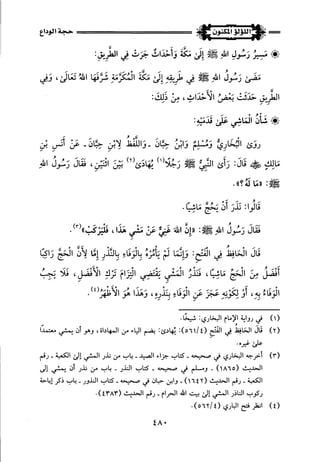 اللؤلؤ المكنون
حجة الوداع
مَسِيرُ رَسُولِ اللهِ ﷺ إِلَى مَكَّةَ وَأَحْدَاثٌ جَرَتْ فِي الطَّرِيقِ:
مَضَى رَسُولُ اللهِ ﷺ فِي طَرِيقِهِ إِلَى مَكَّةَ الْمُكَرَّمَةِ شَرَّفَهَا اللهُ تَعَالَى، وَفِي
الطَّرِيقِ حَدَثَتْ بَعْضُ الْأَحْدَاثِ، مِنْ ذَلِكَ:
شَأْنُ الْمَاشِي عَلَى قَدَمَيْهِ:
رَوَى الْبُخَارِيُّ وَمُسْلِمٌ وَابْنُ حِبَّانَ - وَاللَّفْظُ لِابْنِ حِبَّانَ - عَنْ أَنَسِ بْنِ
مَالِكٍ ﷺ قَالَ: رَأَى النَّبِيُّ ﷺ رَجُلًا (١) يُهَادَى (٢) بَيْنَ اثْنَيْنِ، فَقَالَ رَسُولُ اللهِ
ﷺ: «مَا لَهُ؟».
قَالُوا: نَذَرَ أَنْ يَحُجَّ مَاشِيًا.
فَقَالَ رَسُولُ اللهِ ﷺ: «إِنَّ اللهَ غَنِيٌّ عَنْ مَشْيِ هَذَا، فَلْيَرْكَبْ» (٣).
قَالَ الْحَافِظُ فِي الْفَتْحِ: وَإِنَّمَا لَمْ يَأْمُرْهُ بِالْوَفَاءِ بِالنَّذْرِ إِمَّا لِأَنَّ الْحَجَّ رَاكِبًا
أَفْضَلُ مِنَ الْحَجِّ مَاشِيًا، فَنَذْرُ الْمَشْيِ يَقْتَضِي الْتِزَامَ تَرْكِ الْأَفْضَلِ، فَلَا يَجِبُ
الْوَفَاءُ بِهِ، أَوْ لِكَوْنِهِ عَجَزَ عَنِ الْوَفَاءِ بِنَذْرِهِ، وَهَذَا هُوَ الْأَظْهَرُ (٤).
(١) في رواية الإمام البخاري: شيخًا.
(٢) قَالَ الْحَافِظُ فِي الْفَتْحِ (٥٦١/٤): يُهَادَى: بضم الياء من المهاداة، وهو أن يمشي معتمدًا
على غيره.
(٣) أخرجه البخاري في صحيحه - كتاب جزاء الصيد - باب من نذر المشي إلى الكعبة - رقم
الحديث (١٨٦٥) - ومسلم في صحيحه - كتاب النذر - باب من نذر أن يمشي إلى
الكعبة - رقم الحديث (١٦٤٢) - وابن حبان في صحيحه - كتاب النذور - باب ذكر إباحة
ركوب الناذر المشي إلى بيت الله الحرام - رقم الحديث (٤٣٨٣).
(٤) انظر فتح الباري (٥٦٢/٤).
٤٨٠